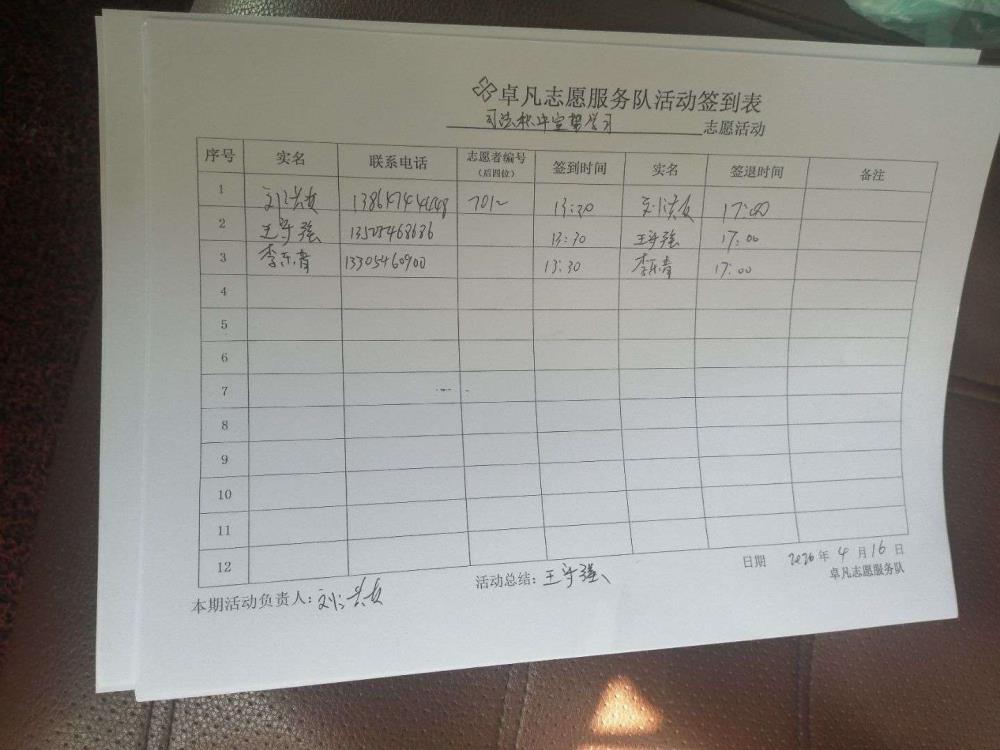 卓凡志愿服务队活动签到表
司法 学习 志愿活动
序号 实名 联系电话 志愿者编号（后四位） 签到时间 实名 签退时间 备注
1 13:30 17:00
2 王守强 13:30 王守强 17:00
3 李乐青 13305460900 13:30 李乐青 17:00
4
5
6
7
8
9
10
11
12
日期 2020年4月16日
本期活动负责人： 活动总结：王守强
卓凡志愿服务队